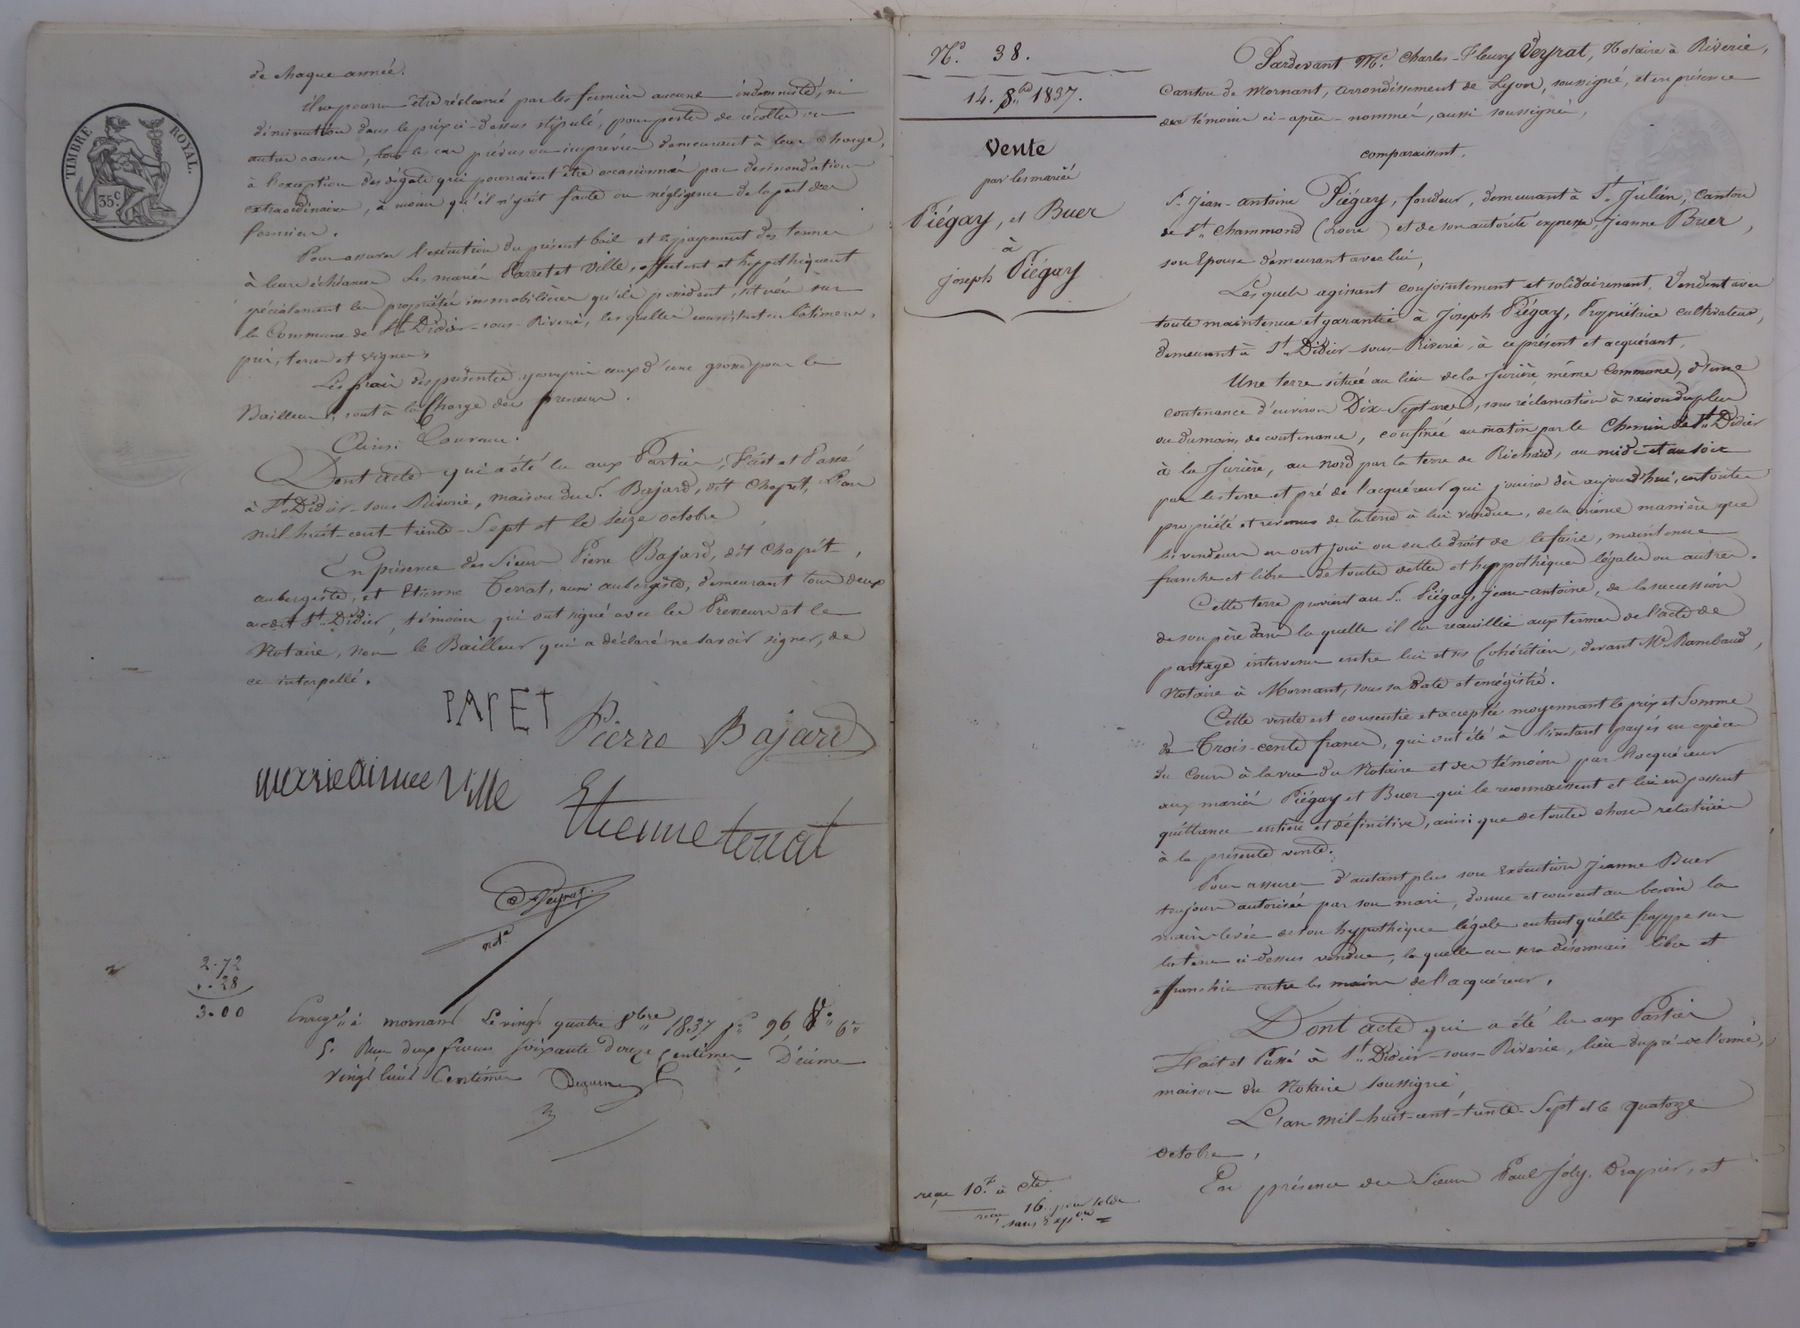 TIMBRE ROYAL.
35.c
de chaque année.
Il ne pourra être réclamé par les fermiers aucune indemnité, ni
diminution dans le prix ci-dessus stipulé, pour perte de récoltes ou
autres causes, tous les cas prévus ou imprévus demeurant à leur charge,
à l'exception des dégats qui pourraient être occasionnés par des inondations
extraordinaires, à moins qu'il n'y ait faute ou négligence de la part des
fermiers.
Pour assurer l'exécution du présent bail et le payement des termes
à leurs échéances les mariés Parret et Ville, affectent et hyppothèquent
spécialement les propriétés immobilières qu'ils possèdent, situées sur
la Commune de St. Didier-sous-Riverie, lesquelles consistent en bâtimens,
prés, terres et vignes.
Les frais des présentes y compris ceux d'une grosse pour le
Bailleur, sont à la Charge des preneurs.
Ainsi Convenu.
Dont acte qui a été lu aux Parties, Fait et Passé
à St. Didier-sous-Riverie, maison du S. Bajard, dit Chapit, L'an
mil-huit-cent-trente-Sept et le Seize octobre
En présence des Sieurs Pierre Bajard, dit Chapit,
aubergiste, et Etienne Terrat, aussi aubergiste, demeurant tous deux
audit St. Didier, témoins qui ont signé avec les Preneurs et le
Notaire, non le Bailleur qui a déclaré ne savoir signer, de
ce interpellé.
PARET
Pierre Bajard
marie aimee Ville
Etienne terrat
Veyrat
not.e
2.72
.28
3.00
Enregé à mornant le vingt quatre 8bre 1837 f° 96 V° C.e 6
R. deux francs soixante douze centimes, Décime
vingt huit Centimes
N.° 38.
14. 8.bre 1837.
Vente
par les mariés
Piégay, et Buer
à
Joseph Piégay
reçu 10.f à cte.
reçu 16. pour solde
sans Expon
Pardevant M.e Charles-Fleury Veyrat, Notaire à Riverie,
Canton de Mornant, arrondissement de Lyon, soussigné, et en présence
des témoins ci-après-nommés, aussi soussignés,
comparaissent,
S. Jean-antoine Piégay, fondeur, demeurant à St. Julien, Canton
de St. Chammond (Loire) et de son autorité expresse, Jeanne Buer,
son Epouse demeurant avec lui,
Lesquels agissant conjointement et solidairement, Vendent avec
toute maintenue et garantie à Joseph Piégay, Propriétaire cultivateur,
demeurant à St. Didier-sous-Riverie, à ce présent et acquérant,
Une terre située au lieu de la Jurière, même Commune, d'une
contenance d'environ Dix-Sept ares, sans réclamation à raison du plus
ou du moins de contenance, confinée au matin par le Chemin de St. Didier
à la Jurière, au nord par la terre de Richard, au midi et au soir
par les terre et pré de l'acquéreur qui jouira dès aujourd'hui, en toute
propriété et revenus de la terre à lui vendue, de la même manière que
les vendeurs en ont joui ou eu le droit de le faire, maintenue
franche et libre de toutes dettes et hyppothèques légales ou autres.
Cette terre provient au S. Piégay, Jean-antoine, de la succession
de son père dans laquelle il l'a recueillie aux termes de l'acte de
partage intervenu entre lui et ses Cohéritiers, devant M.e Rambaud,
Notaire à Mornant, sous sa Date et enregistré.
Cette vente est consentie et acceptée moyennant le prix et Somme
de Trois-cents francs, qui ont été à l'instant payés en espèces
du Cours à la vue du Notaire et des témoins par l'acquéreur
aux mariés Piégay et Buer qui le reconnaissent et lui en passent
quittance entière et définitive, ainsi que de toutes choses relatives
à la présente vente.
Pour assurer d'autant plus son Exécution Jeanne Buer
toujours autorisée par son mari, donne et consent au besoin la
main-levée de son hyppothèque légale en tant qu'elle frappe sur
la terre ci-dessus vendue, laquelle en sera désormais libre et
affranchie entre les mains de l'acquéreur.
Dont acte qui a été lu aux Parties
Fait et Passé à St. Didier-sous-Riverie, lieu du pré-de l'orme,
maison du Notaire soussigné,
L'an-mil-huit-cent-trente-Sept et le quatorze
octobre,
En présence des Sieurs Paul Joly, Drapier, et